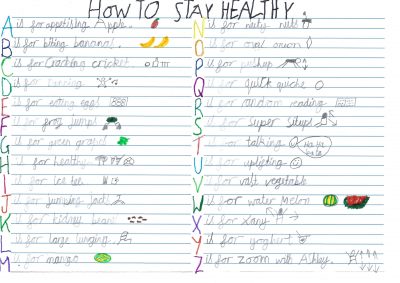 HOW TO STAY HEALTHY
A is for appetising Apple.
B is for biting bananas.
C is for cracking cricket
D is for running
E is for eating eggs
F is for frog jumps
G is for green grapes
H is for healthy
I is for ice tea
J is for jumping Jacks
K is for kidney beans
L is for large lunging
M is for mango
N is for nutty nuts
O is for onion
P is for pushup
Q is for quick quiche
R is for random reading
S is for super situps
T is for talking
U is for uplifting
V is for vast vegetable
W is for water melon
X is for
Y is for yoghurt
Z is for zoom with Ashley.